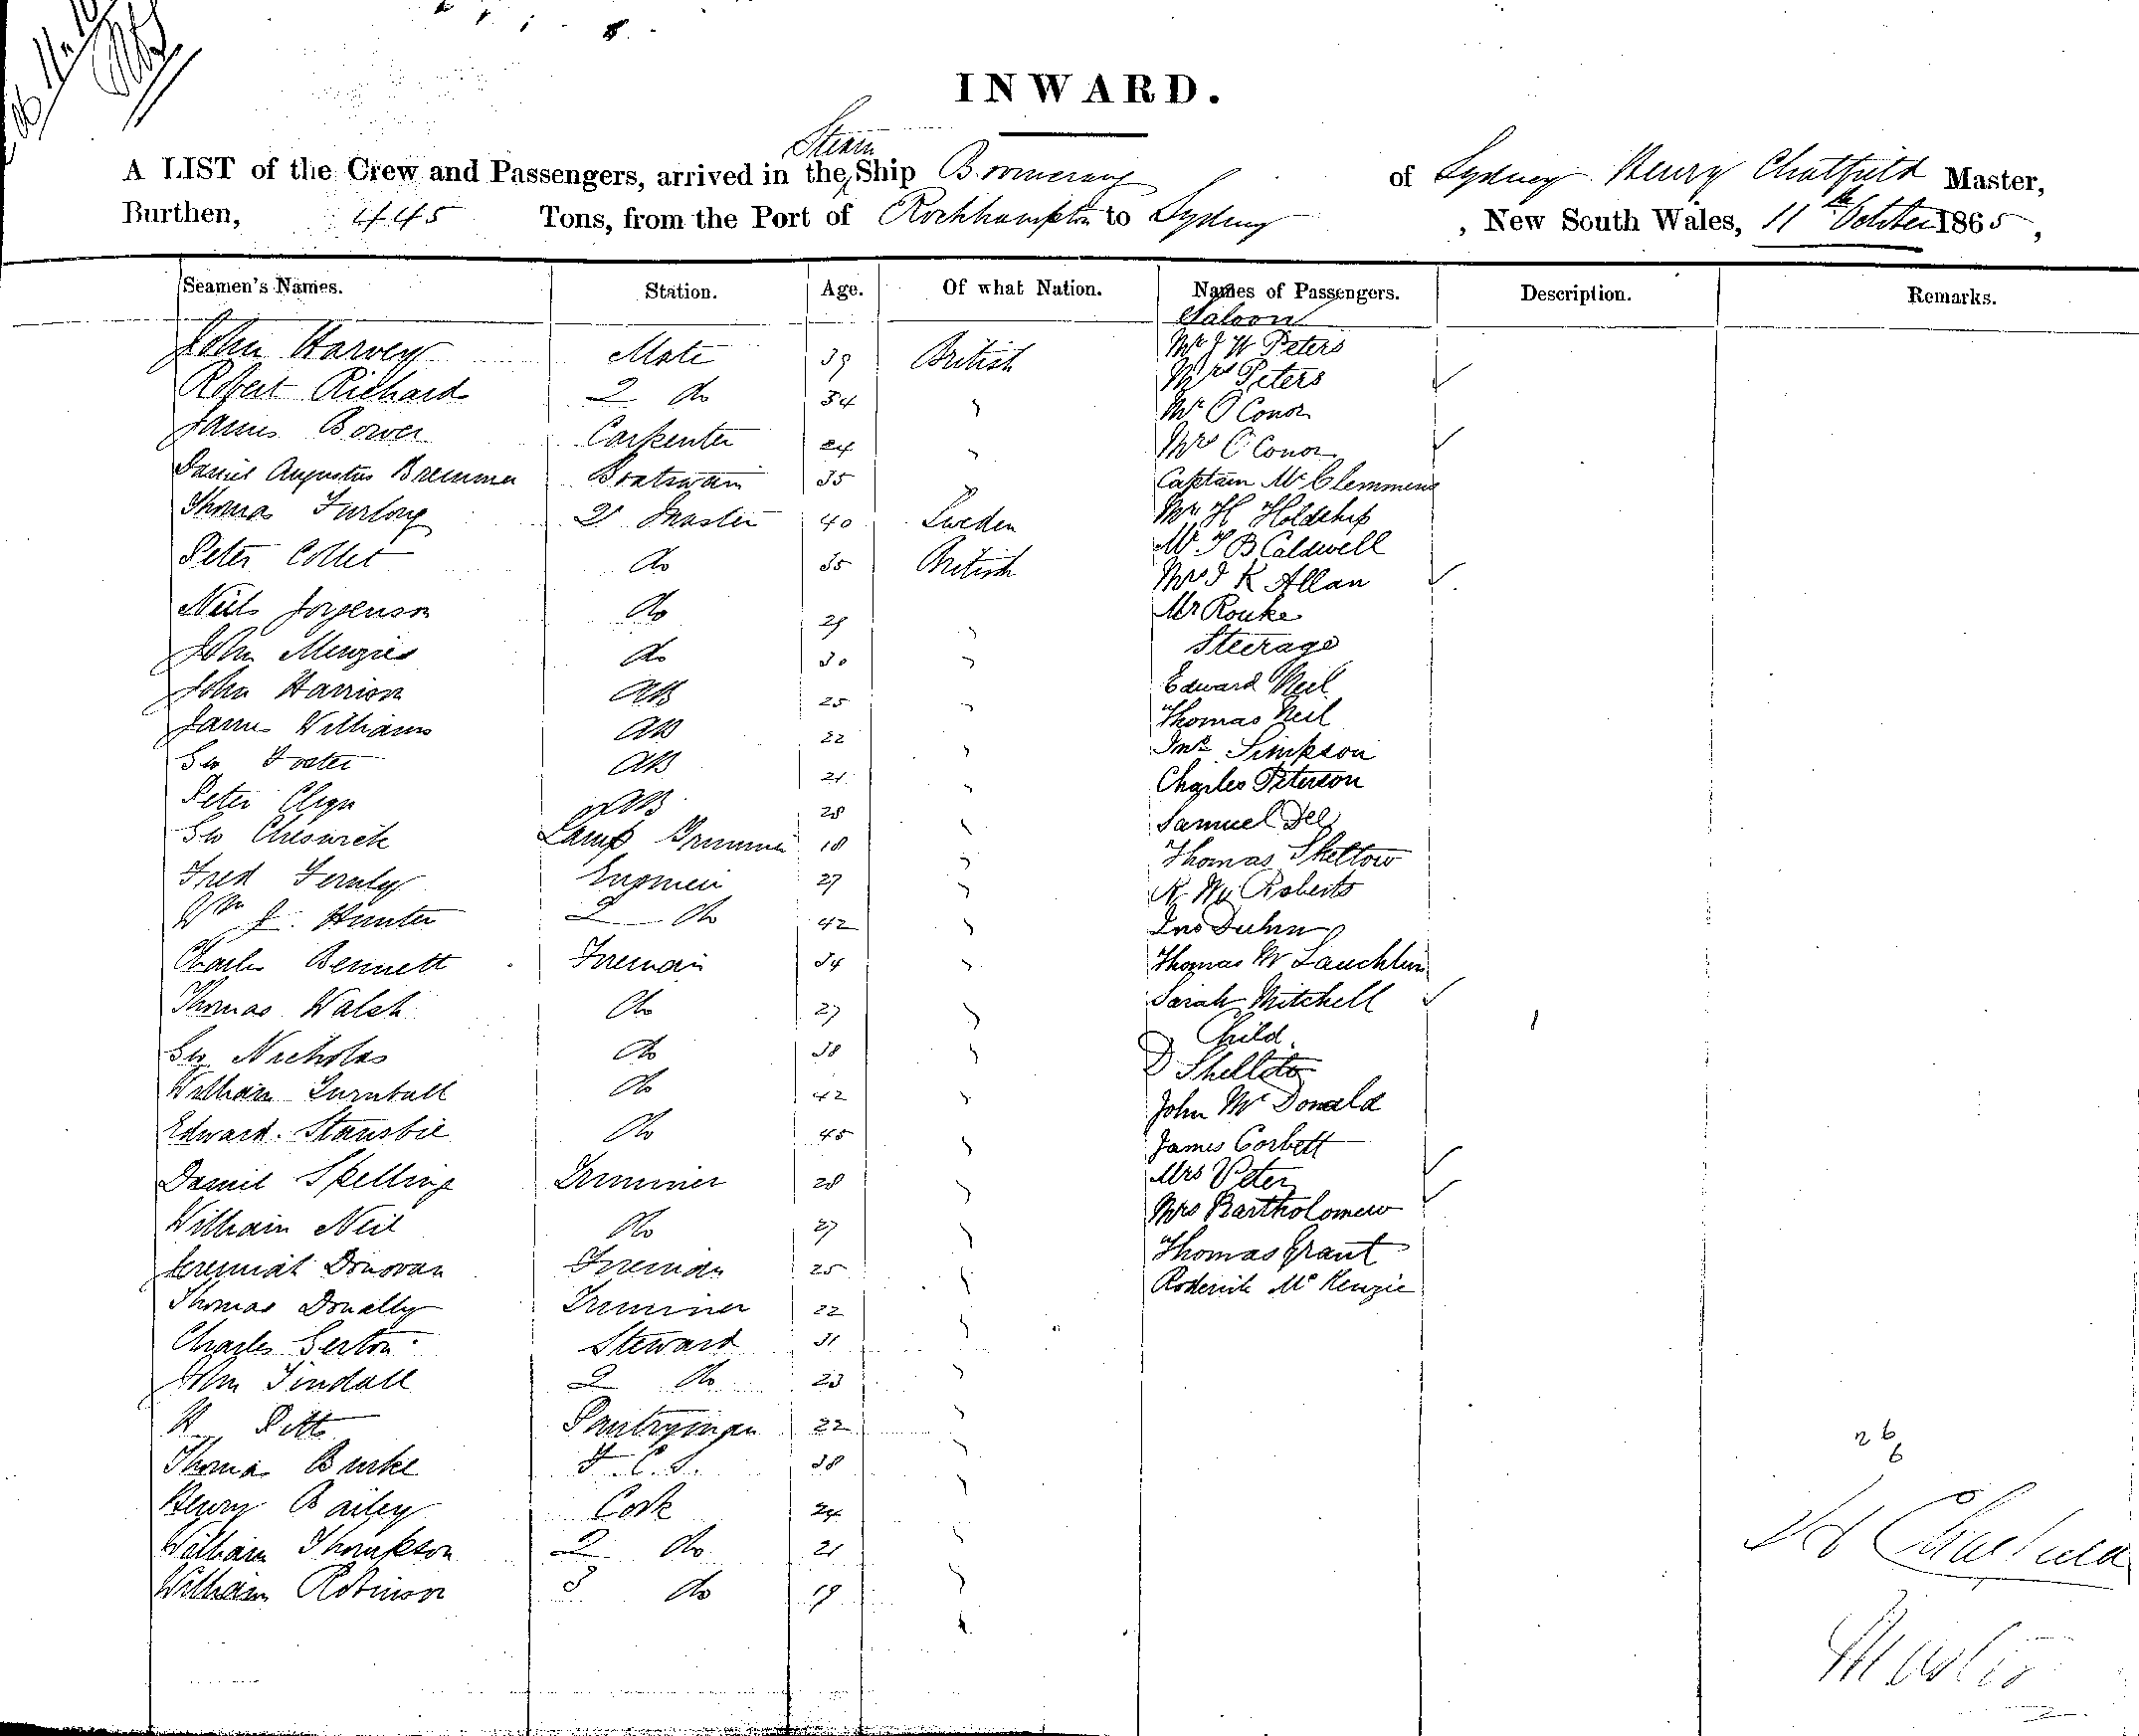 INWARD.
Steam
A LIST of the Crew and Passengers, arrived in the Ship Boomerang of Sydney Henry Chatfield Master,
Burthen, 445 Tons, from the Port of Rockhampton to Sydney , New South Wales, 11th October 1865,
Seamen's Names. Station. Age. Of what Nation. Names of Passengers. Description. Remarks.
Saloon
John Harvey Mate 39 British Mr J W Peters
Robert Richard 2 do 34 Mrs Peters
James Bower Carpenter 24 Mr O Conor
Mrs O Conor
Daniel Augustus Bremner Boatswain 35 Captain McClemmens
Thomas Furlong 2r Master 40 Sweden Mr H Holdship
Peter Collet do 35 British Mr T B Caldwell
Mrs J K Allan
Neils Jorgenson do 29 Mr Rouke
John Menzies do 30 Steerage
John Harrison AB 25 Edward Neil
James Williams AB 22 Thomas Neil
Geo Foster AB 21 Jno Simpson
Peter AB 28 Charles Peterson
Geo Cheswick Lamp Trimmer 18 Samuel
Fred Fernly Engineer 27 Thomas Skelton
Wm J. Hunter 2 do 42 Roberts
Charles Bennett Fireman 34 Jno
Thomas McLauchlin
Thomas Walsh do 27 Sarah Mitchell
Geo Nicholas do 38 Child
William Turnbull do 42 D
Edward Stansbie do 45 John McDonald
James Corbett
Daniel Skelling Trimmer 28 Mrs Peter
William Neil do 27 Mrs Bartholomew
Jeremiah Donovan Fireman 25 Thomas Grant
Thomas Donally Trimmer 22 Roderick McKenzie
Charles Serton Steward 31
John Tindall 2 do 23
H Pitt Pantryman 22
Thomas Burke F.C.S. 38
Henry Bailey Cook 24
William Thompson 2 do 21
William Robinson 3 do 19
26
6
H Chatfield
Master